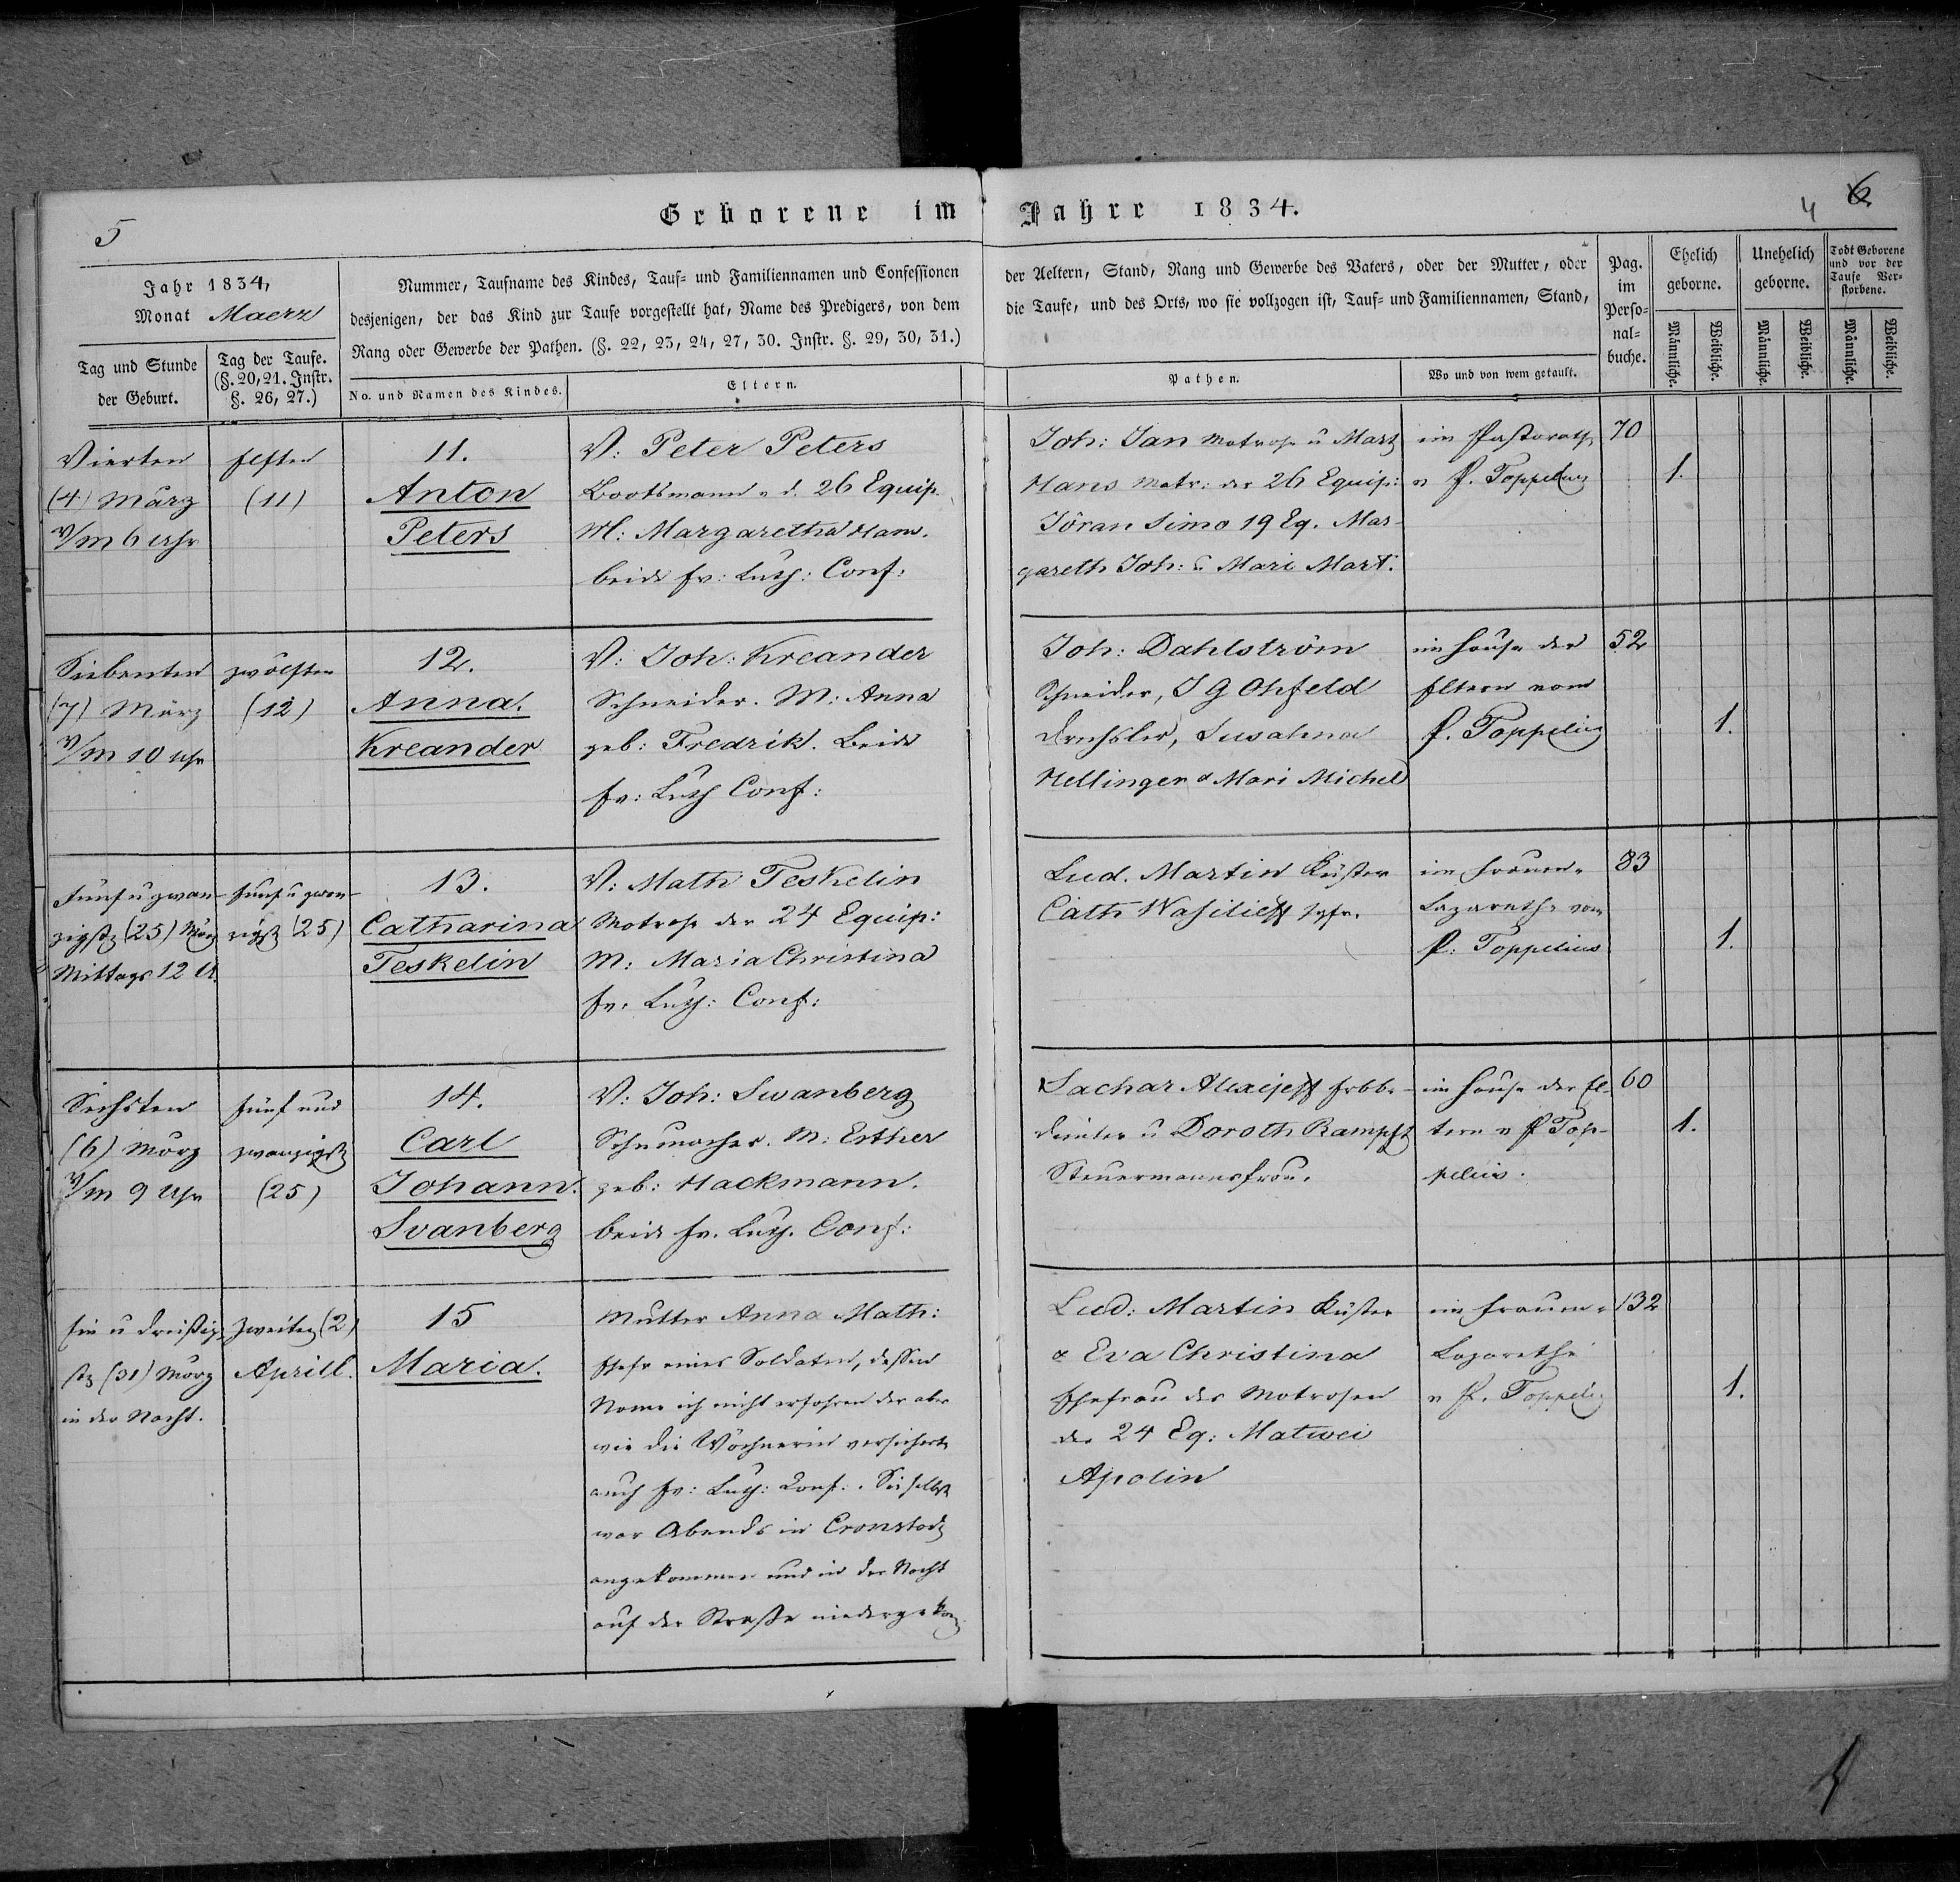 5
Geborene im Jahre 1834.
4 6.
Jahr 1834,
Monat Maerz
Tag und Stunde
der Geburt.
Tag der Taufe.
(§. 20, 21. Instr.
§. 26, 27.)
Nummer, Taufname des Kindes, Tauf- und Familiennamen und Confessionen
desjenigen, der das Kind zur Taufe vorgestellt hat, Name des Predigers, von dem
Rang oder Gewerbe der Pathen. (§. 22, 23, 24, 27, 30. Instr. §. 29, 30, 31.)
No. und Namen des Kindes.
Eltern.
der Aeltern, Stand, Rang und Gewerbe des Vaters, oder der Mutter, oder
die Taufe, und des Orts, wo sie vollzogen ist, Tauf- und Familiennamen, Stand,
Pathen.
Wo und von wem getauft.
Pag.
im
Perso-
nal-
buche.
Ehelich
geborne.
Unehelich
geborne.
Todt Geborene
und vor der
Taufe Ver-
storbene.
Männliche.
Weibliche.
Männliche.
Weibliche.
Männliche.
Weibliche.
Vierten
(4) März
V/m 6 Uhr
Elften
(11)
11.
Anton
Peters
V: Peter Peters
Bootsmann v. d. 26 Equip.
M: Margaretha Hans.
beide Ev: Luth: Conf:
Joh: Jan Matrose u Mart
Hans Matr: der 26 Equip:
Jöran Simo 19 Eq. Mar-
gareth Joh: u Mari Mart:
im Pastorath
v P. Toppelius
70
1.
Siebenten
(7) März
V/m 10 Uhr
zwölften
(12)
12.
Anna.
Kreander
V: Joh: Kreander
Schneider. M: Anna
geb: Fredrik. Beide
Ev: Luth Conf:
Joh: Dahlström
Schneider, J G Ohfeld
Drechsler, Susahna
Hellinger & Mari Michel
im Hause der
Eltern vom
P. Toppelius
52
1.
Fünf u zwan-
zigste (25) März
Mittags 12 U.
fünf u zwan-
zigste (25)
13.
Catharina
Teskelin
V: Math Teskelin
Matrose der 24 Equip:
M: Maria Christina
Ev. Luth: Conf:
Lud. Martin Küster
Cath Wasilieff
im Frauen-
Lazarethe vom
P: Toppelius
83
1.
Sechsten
(6) März
V/m 9 Uhr
fünf und
zwanzigste
(25)
14.
Carl
Johann.
Svanberg
V: Joh: Swanberg
Schumacher. M: Esther
geb: Hackmann.
beide Ev. Luth. Conf:
Sachar Alexejeff
u Doroth Rampft
Steuermannsfrau.
im Hause der El-
tern v P Top-
pelius.
60
1.
Ein u dreißig-
ste (31) März
in der Nacht.
Zweiten (2)
Aprill.
15
Maria.
Mutter Anna Math:
Ehefr eines Soldaten, dessen
Name ich nicht erfahren der aber
wie die Wöchnerin versicherte
auch Ev: Luth: Conf:. Sie selbst
war Abends in Cronstadt
angekommen und in der Nacht
auf der Straße niedergekom
Lud: Martin Küster
& Eva Christina
Ehefrau des Matrosen
der 24 Eq: Matwei
Apolin
im Frauen-
Lazarethe
v P. Toppelius
132
1.